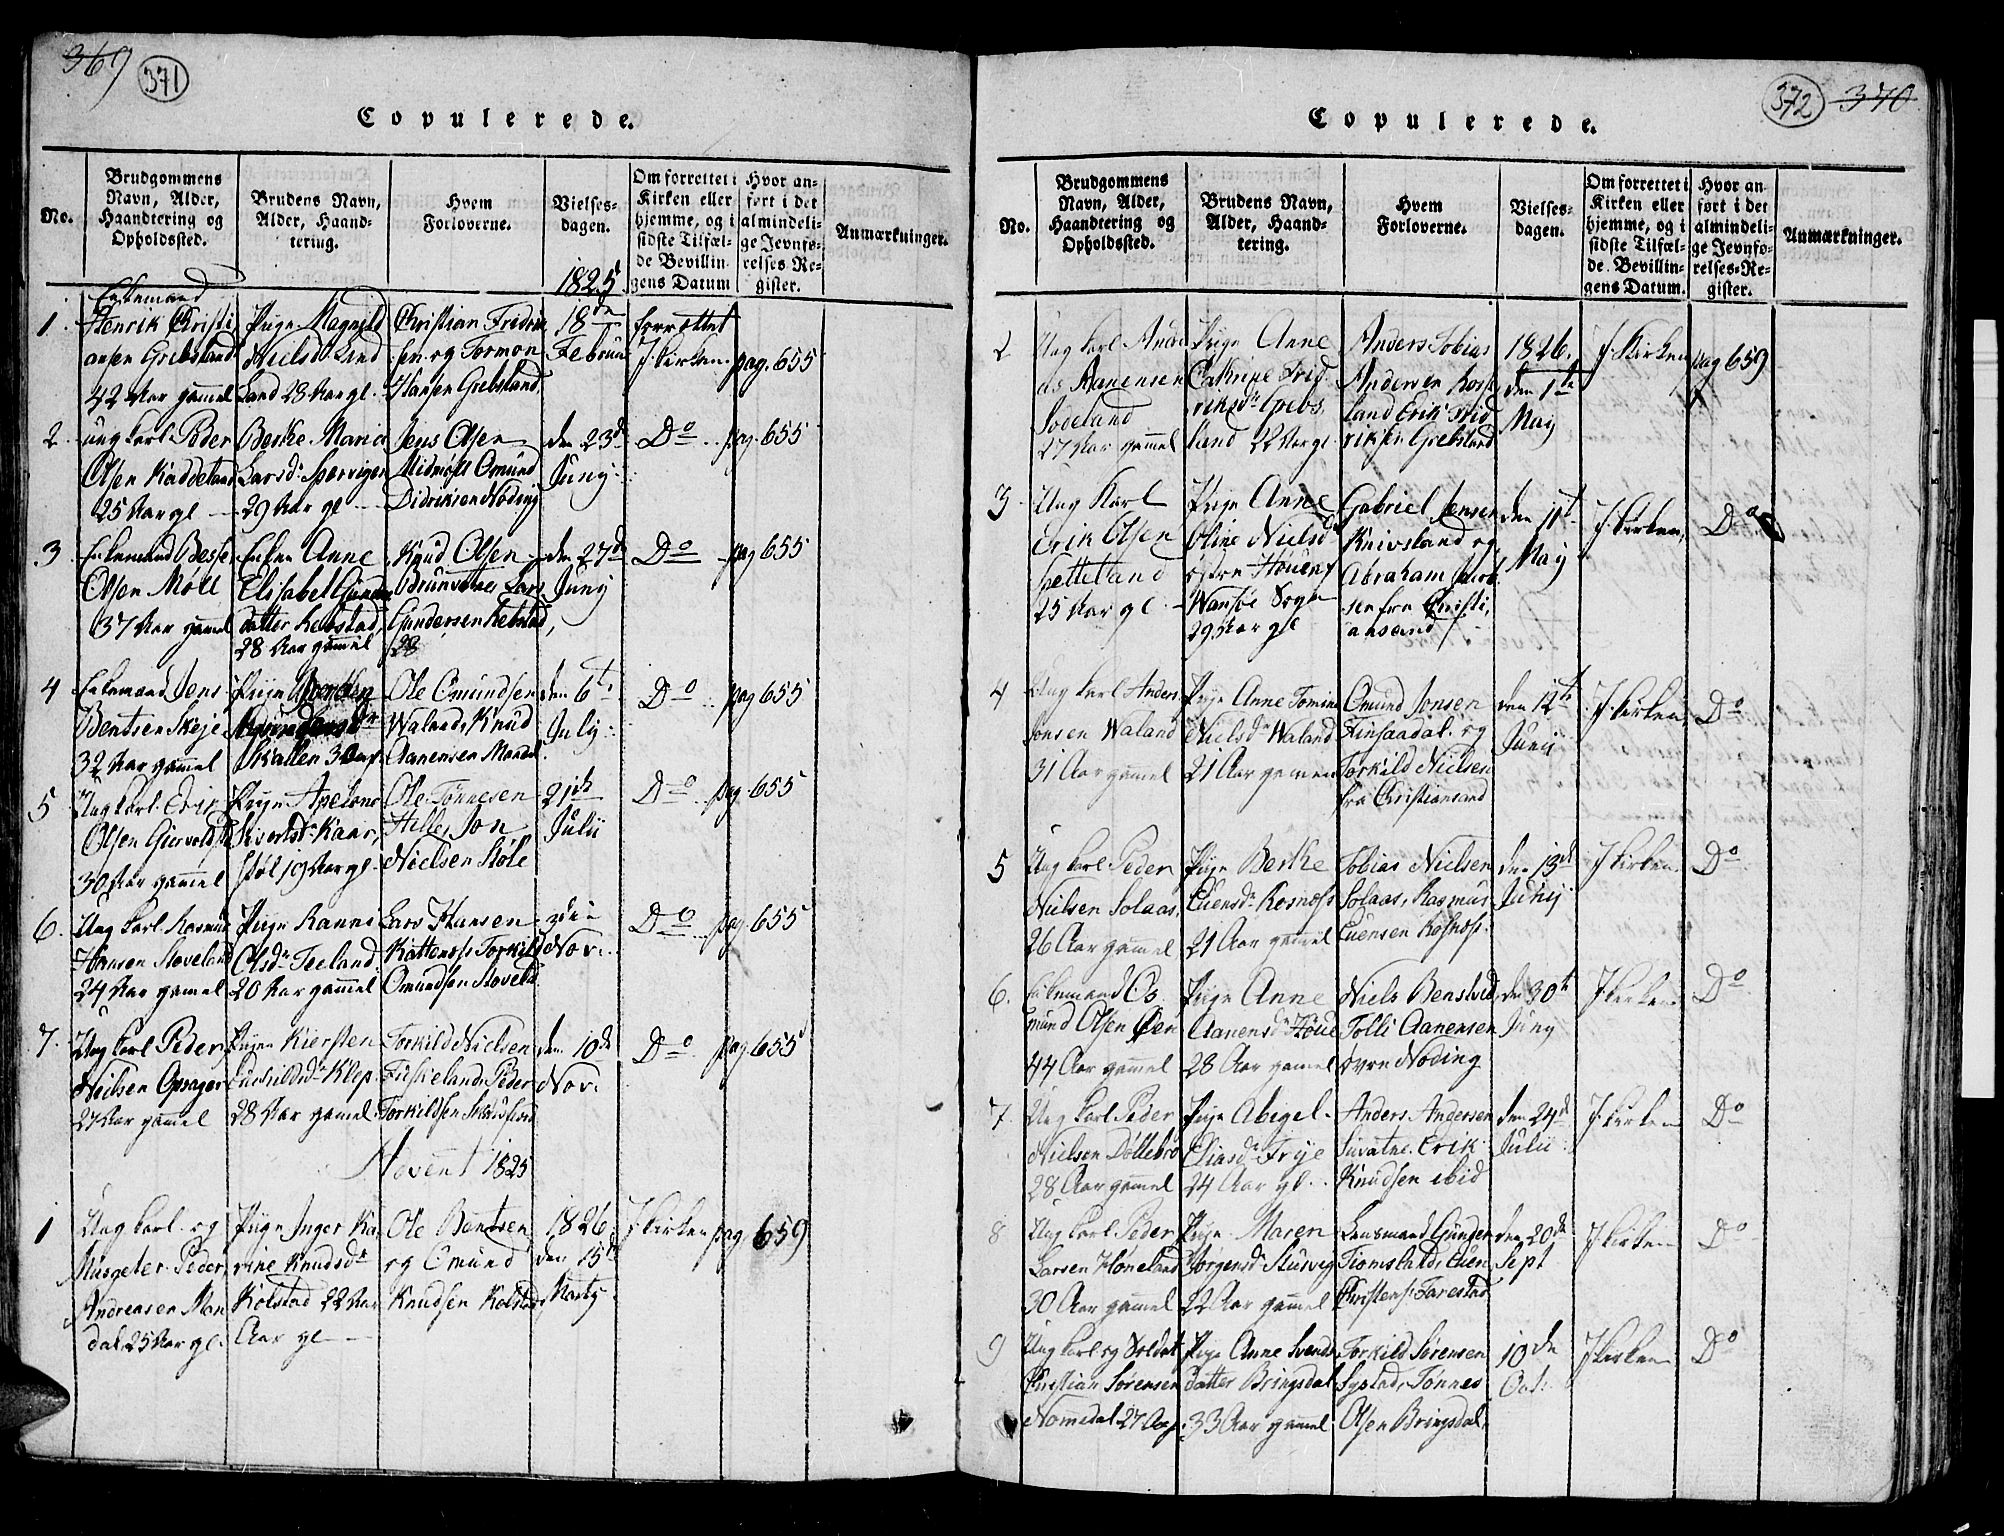 369
371
Copulerede.
No.
Brudgommens
Navn, Alder,
Haandtering og
Opholdssted.
Brudens Navn,
Alder, Haand-
tering.
Hvem
Forloverne.
Vielses-
dagen.
Om forrettet i
Kirken eller
hjemme, og i
sidste Tilfæl-
de Bevillin-
gens Datum
Hvor an-
ført i det
almindeli-
ge Jevnfø-
relses-Re-
gister.
Anmærkninger.
1825
1.
Enkemand
Henrik Christi
ansen Grebsland
42 Aar gammel
Pige Magnild
Nielsd. Lind
Land 28 Aar gl.
Christian Fredrik
sen og Tormon
Hansen Grebsland,
18de
Februar
forrættet
I Kirken
pag. 655
2.
ung karl Peder
Olsen Kaddeland
25 Aar gl
Berthe Maria
Larsd.
29 Aar gl
Jens Olsen
Midmøst Omund
Didriksen Noding
den 23d
Juny
Do
pag. 655
3
Enkemand
Olsen Møll
37 Aar gamel
Enken Anne
Elisabet Gunder
datter Kebstad,
28 Aar gammel
Knud Olsen
Brunvatne, Lars
Gundersen Kebstad,
28
den 27d
Juny
Do
pag 655
4
Enkemand Jens
Bentsen Skeje
32 Aar gammel
Pige
Skallen 30
Ole Omundsen
Waland, Knud
Aanensen Mandal
den 6te
July
Do
pag 655
5
Ung karl Erik
Olsen
30 Aar gammel
Pige Apelone
Siverlsd. Kaar,
støl 19 Aar gl.
Ole Tønnesen
Hille, Jon
Nielsen Støle
21de
Julii
Do
pag. 655
6.
Ung karl Rasmus
Hansen Stoveland
24 Aar gamel
Pige Ranni
Olsdr. Teeland
20 Aar gammel
Lars Hansen
Kattenoss Torkild
Omundsen Stoveld
3die
Nov.
Do
pag. 655
7.
Ung karl Peder
Nielsen Opsager
27 Aar gammel
Pigen Kiersten
Klep
28 Aar gamel
Torkild Nielsen
Fuskeland, Peder
Torkildsen
den 10de
Nov.
Do
pag. 655
Novemt 1825
1
Ung karl og
Musqeter Peder
Andreasen Man
dal 25 Aar gl.
Pige Inger Ka
rine Knudsdr
Kolstad 22 Aar
Aar gl
Ole Bentsen
og Omund
Knudsen Kolstad
1826
den 15de
Marty
I Kirken
pag. 659
372
370
Copulerede.
No.
Brudgommens
Navn, Alder,
Haandtering og
Opholdssted.
Brudens Navn,
Alder, Haand-
tering.
Hvem
Forloverne.
Vielses-
dagen.
Om forrettet i
Kirken eller
hjemme, og i
sidste Tilfæl-
de Bevillin-
gens Datum.
Hvor an-
ført i det
almindeli-
ge Jevnfø-
relses-Re-
gister.
Anmærkninger.
2
Ung karl Andre
as Aanensen
Sodeland
27 Aar gammel
Pige Anne
Catrine Fred
riksdr. Grebs,
land 22 Aar gl
Anders Tobias
Andersen Ross
land Erik Frid
riksen Grebsland
1826.
den 1te
May
I Kirken
pag 659
3
Ung Karl
Erik Olsen
25 Aar gl
Pige Anne
Oline Nielsdr
øvre Høuen
Wansøe Sogn
29 Aar gl
Gabriel Jensen
Knivsland og
Abraham Jacob
sen fra Christi,
ansand
den 11t
May
I Kirken,
Do
4
Ung karl Anders
Jonsen Waland
31 Aar gamel
Pige Anne Tomine
Nielsdr. Waland
21 Aar gamel
Omund Jonsen
Finsaadal og
Torkild Nielsen
fra Christiansand
den 12te
Junii
I Kirken
Do
5
Ung karl Peder
Nielsen Solaas,
26 Aar gammel
Pige Berthe
Euensdr. Rosnoss
21 Aar gammel
Tobias Nielsen
Solaas, Rasmus
Euensen Rosnos.
den 13de
Juny
I Kirken
Do
6.
Enkemand Os
mund Olsen Øen
44 Aar gammel
Pige Anne
Aanensdr. Høue
28 Aar gammel
Niels Benstved
Tolli Aanensen
øvre Noding
den 30t
Juny
I Kirken
Do
7.
Ung karl Peder
Nielsen Döllebro
28 Aar gammel
Pige Abigel
Eliasdr. Frye
24 Aar gl.
Anders Andersen
Suvatne Erik
Knudsen ibid
den 24de
Julii
I Kirken
Do
8
Ung karl Peder
Larsen Høneland
30 Aar gammel
Pige Maren
Jørgensdr. Stusvig
22 Aar gammel
Lensmand Gunder
Tiomstad, Euen
Christens. Tarestad
den 20de
Sept
I Kirken
Do
9
Ung karl og Soldat
Christian Sørensen
Nomedal 27 Aar
Pige Anne Svends
datter Bringsdal
33 Aar gammel
Torkild Sørensen
Systad, Tønnes
Olsen Bringsdal,
10de
Oct.
I Kirken
Do